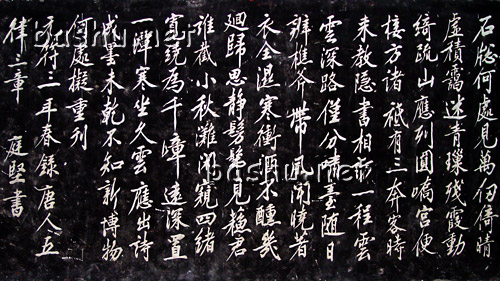 石牎何處見萬仞倚晴
虛積靄迷青璅殘霞動
綺疏山應列圓嶠宮便
接方諸祗有三奔客時
来教隱書相訪一程雲
雲深路僅分嘯臺隨日
辨樵斧帶風聞曉著
衣全濕寒衝酒不醺幾
廻歸思靜髣髴見蘇君
誰截小秋灘閑窺四緒
寬繞為千嶂遠深置
一潭寒坐久雲應出詩
成墨未乾不知新博物
何處擬重刊
元符三年春錄唐人五
律三章 庭堅書